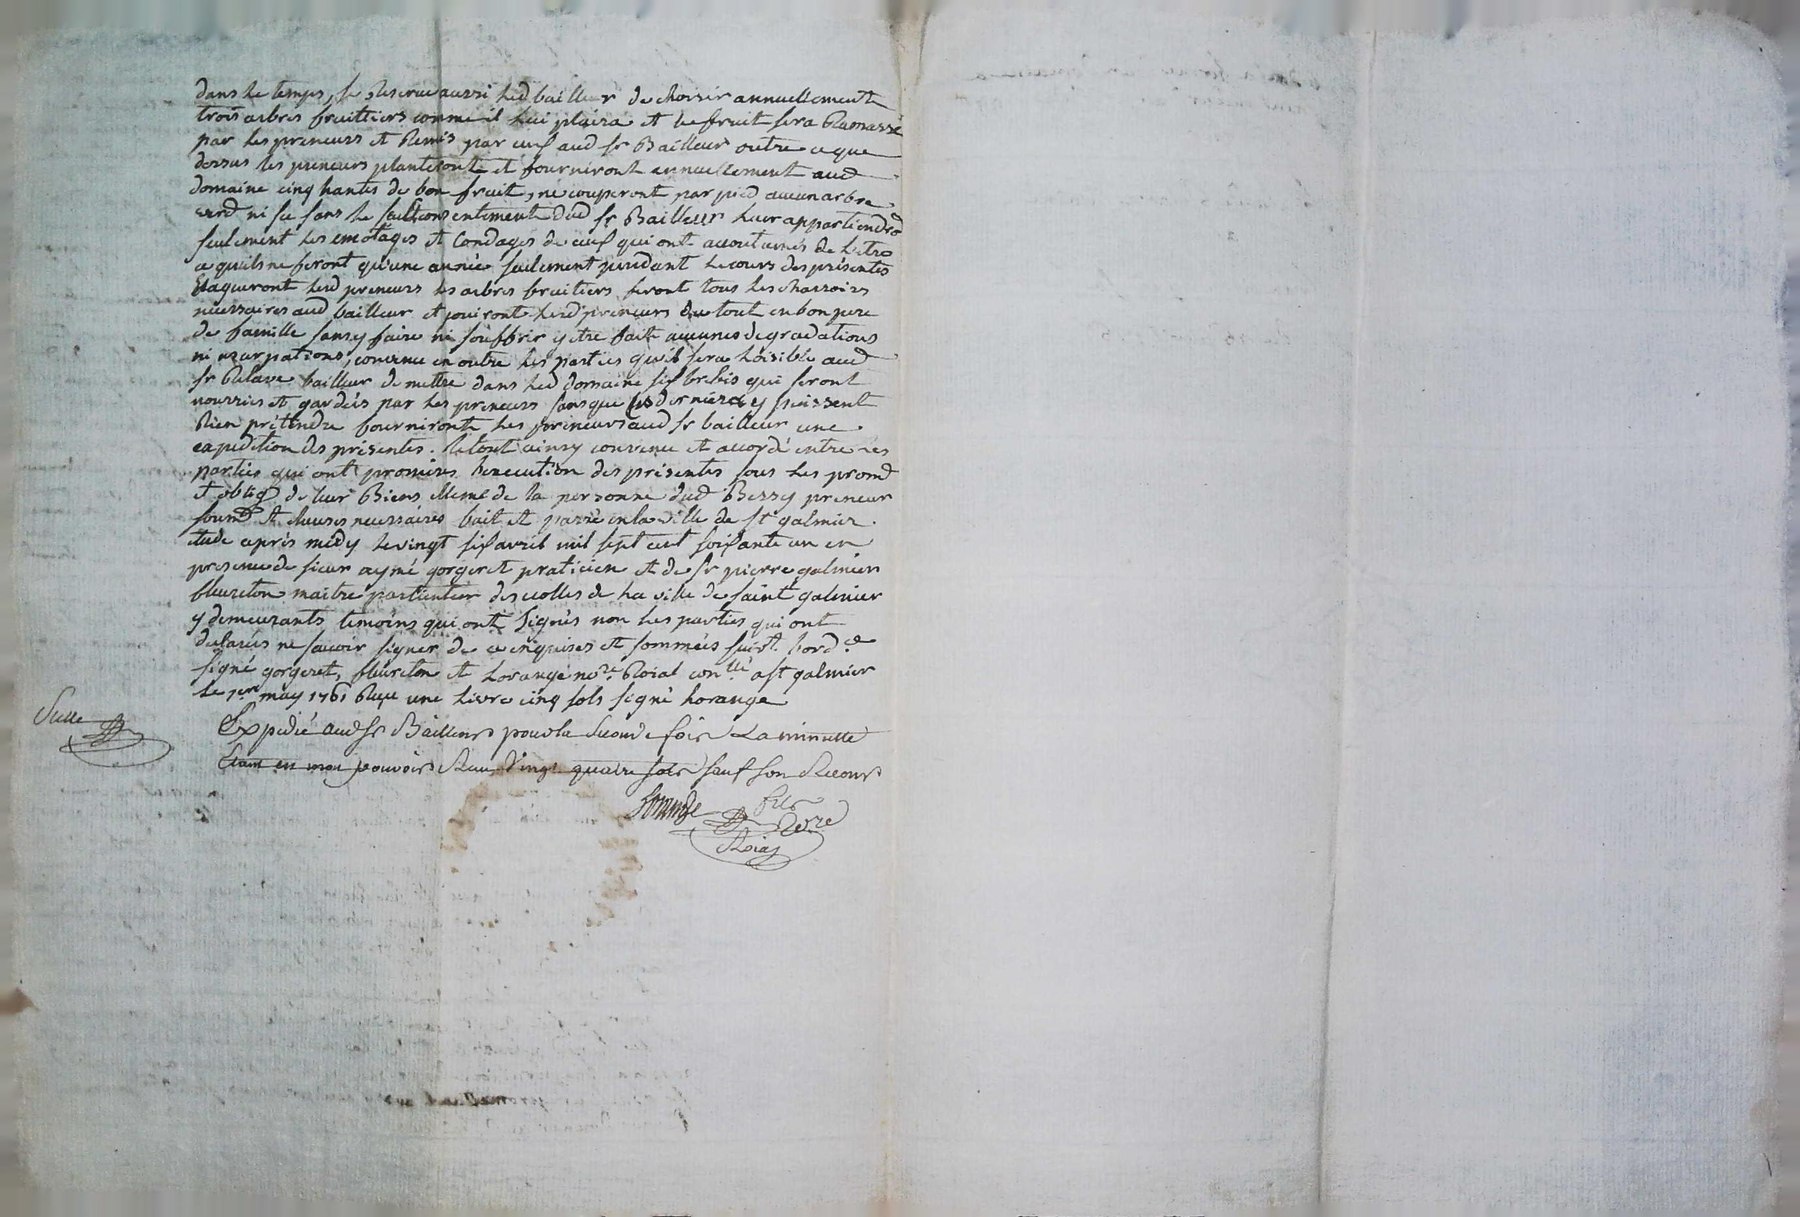 dans le temps, se reserve aussi led bailleur de choisir annuellement
trois arbres fruittiers comme il lui plaira et le fruit sera Ramassé
par les preneurs et Remis par eux aud sr Bailleur outre ce que
dessus les preneurs planteront et fourniront annuellement aud
domaine cinq hantes de bon fruit, ne couperont par pied aucun arbre
verd ni sec sans le consentement dud sr Bailleur leur appartiendra
seulement les emotages et Condages de ceux qui ont accoutumés de l'etre
ce qu'ils ne feront qu'une année seulement pendant le cours des présentes
Elagueront lesd preneurs les arbres fruitiers feront tous les charrois
nécessaires aud bailleur et jouiront lesd preneurs du tout en bon pere
de famille sans y faire ni souffrir y etre fait aucunes degradations
ni usurpations, convenu en outre les parties qu'il sera loisible aud
sr bailleur de mettre dans led domaine six brebis qui seront
nourries et gardées par les preneurs sans que ces dernieres y puissent
Rien prétendre fourniront les preneurs aud sr bailleur une
expedition des présentes. le tout ainsy convenu et accordé entre les
parties qui ont promises l'execution des présentes sous les prom
et oblig de leur Biens de la personne dud Bessy preneur
soum et clauses necessaires fait et passé en la ville de st galmier
etude après midy le vingt six avril mil sept cent soixante un en
presence de sieur aymé gorgeret praticien et de sr pierre galmier
fleureton maitre particulier des ecolles de la ville de saint galmier
y demeurants temoins qui ont signés non les parties qui ont
déclarés ne savoir signer de ce enquises et sommés suivt. l'ord.ce
signé gorgeret, fleureton et Lorange no.re Roial con.llé a st galmier
le 1er may 1761 Reçu une livre cinq sols signé horange
Expedié aud sr Bailleur pour la seconde fois La minutte
Etant en mon pouvoir Reçu Vingt quatre sols sauf son Recours
fils
Roial